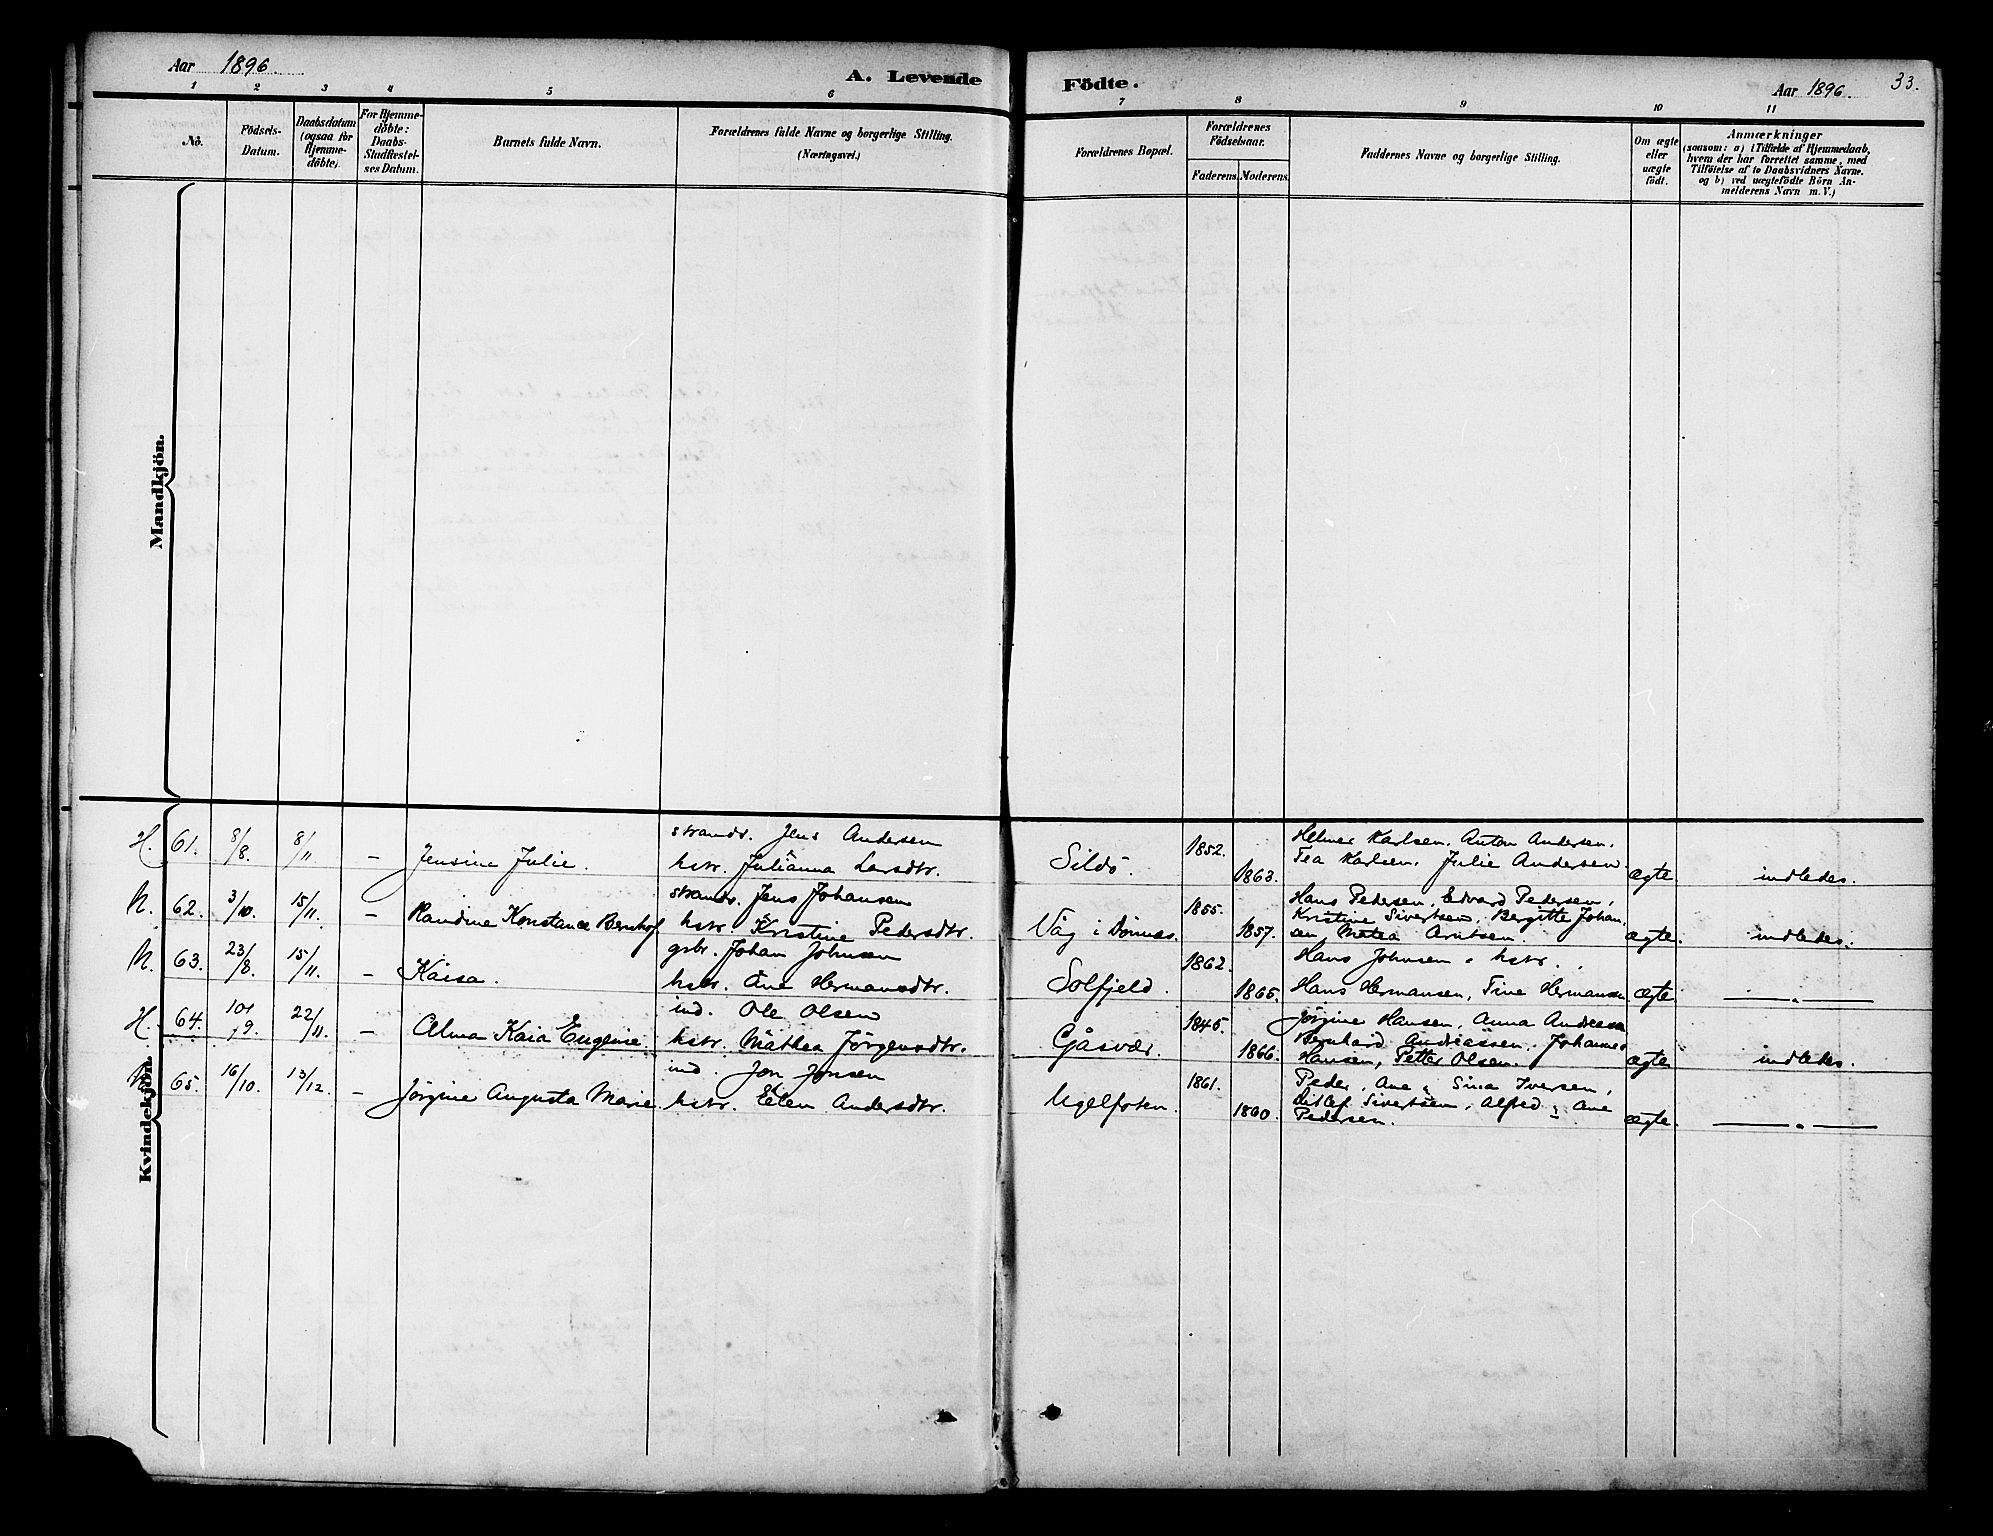 Aar 1896.
A. Levende Födte.
Aar 1896. 33.
1 2 3 4 5 6 7 8 9 10 11
No.
Födsels-
Datum.
Daabsdatum
(ogsaa for
Hjemme-
døbte).
For Hjemme-
døbte:
Daabs-
Stadfæstel-
ses Datum.
Barnets fulde Navn.
Forældrenes fulde Navne og borgerlige Stilling.
(Næringsvei.)
Forældrenes Bopæl.
Forældrenes
Födselsaar.
Faderens. Moderens.
Faddernes Navne og borgerlige Stilling.
Om ægte
eller
uægte
født.
Anmærkninger
(saasom: a) i Tilfælde af Hjemmedaab,
hvem der har forrettet samme, med
Tilföielse af to Daabsvidners Navne.
og b) ved uægtefödte Börn An-
melderens Navn m. V.)
Mandkjön.
Kvindekjön.
H. 61. 8/8. 8/11 – Jensine Julie.
strandr. Jens Andersen
hstr. Julianna Larsdtr.
Sildö. 1852. 1863.
Helmer Karlsen. Anton Andersen.
Tea Karlsen. Julie Andersen.
ægte. indledes.
N. 62. 3/10. 15/11. – Randine Konstance Bernhof
strandr. Jens Johansen
hstr. Kristine Pedersdtr.
Våg i Dönnes. 1855. 1857.
Hans Pedersen, Edvard Pedersen,
Kristine Sivertsen, Bergitte Johan
sen Matea Arntsen.
ægte. indledes.
N. 63. 23/8. 15/11. – Kaisa.
gbr. Johan Johnsen
hstr. Ane Hermansdtr.
Solfjeld. 1862. 1865.
Hans Johnsen o hstr.
Hans Hermansen, Tine Hermansen
ægte — „ —
H. 64. 10/9. 22/11. – Alma Kaia Eugenie.
ind. Ole Olsen
hstr. Mathea Jörgensdtr.
Gåsvær. 1845. 1866.
Jörgine Hansen, Anna Andreasen
Bernhard Andreassen. Johannes
Hansen, Petter Olsen.
ægte indledes.
N. 65. 16/10. 13/12. – Jörgine Augusta Marie
ind. Jon Jonsen
hstr. Elen Andersdtr.
1861. 1860.
Peder, Ane o Sina Iversen,
Ditlef Sivertsen, Alfred o Ane
Pedersen.
ægte. — „ —